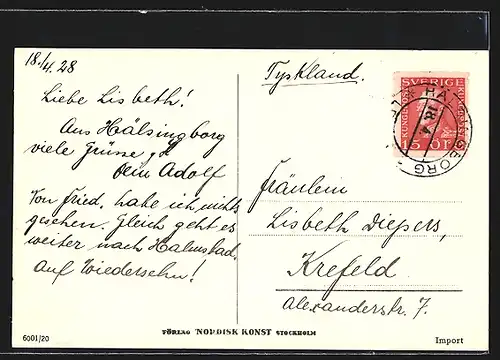 18./4. 28
Liebe Lisbeth!
Aus Hälsingborg
viele Grüsse
Dein Adolf
Von Fried. habe ich nichts
gesehen. Gleich geht es
weiter nach Halmstad.
Auf Wiedersehn!
Tyskland.
SVERIGE
15 ÖRE
HÄLSINGBORG
18. 4
Fräulein
Lisbeth Diepers,
Krefeld
Alexanderstr. 7.
6001/20
FÖRLAG NORDISK KONST STOCKHOLM
Import